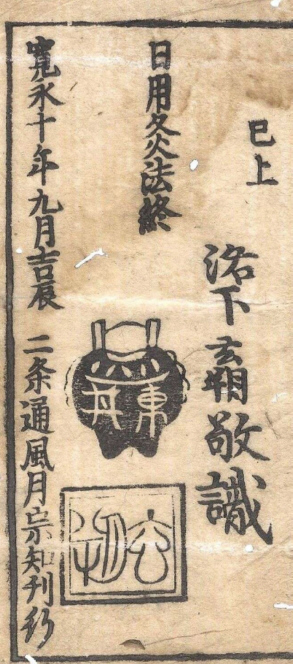 巳上
洛下玄朔敬識
東井
日用灸法終
寛永十年九月吉辰 二条通風月宗知刊行